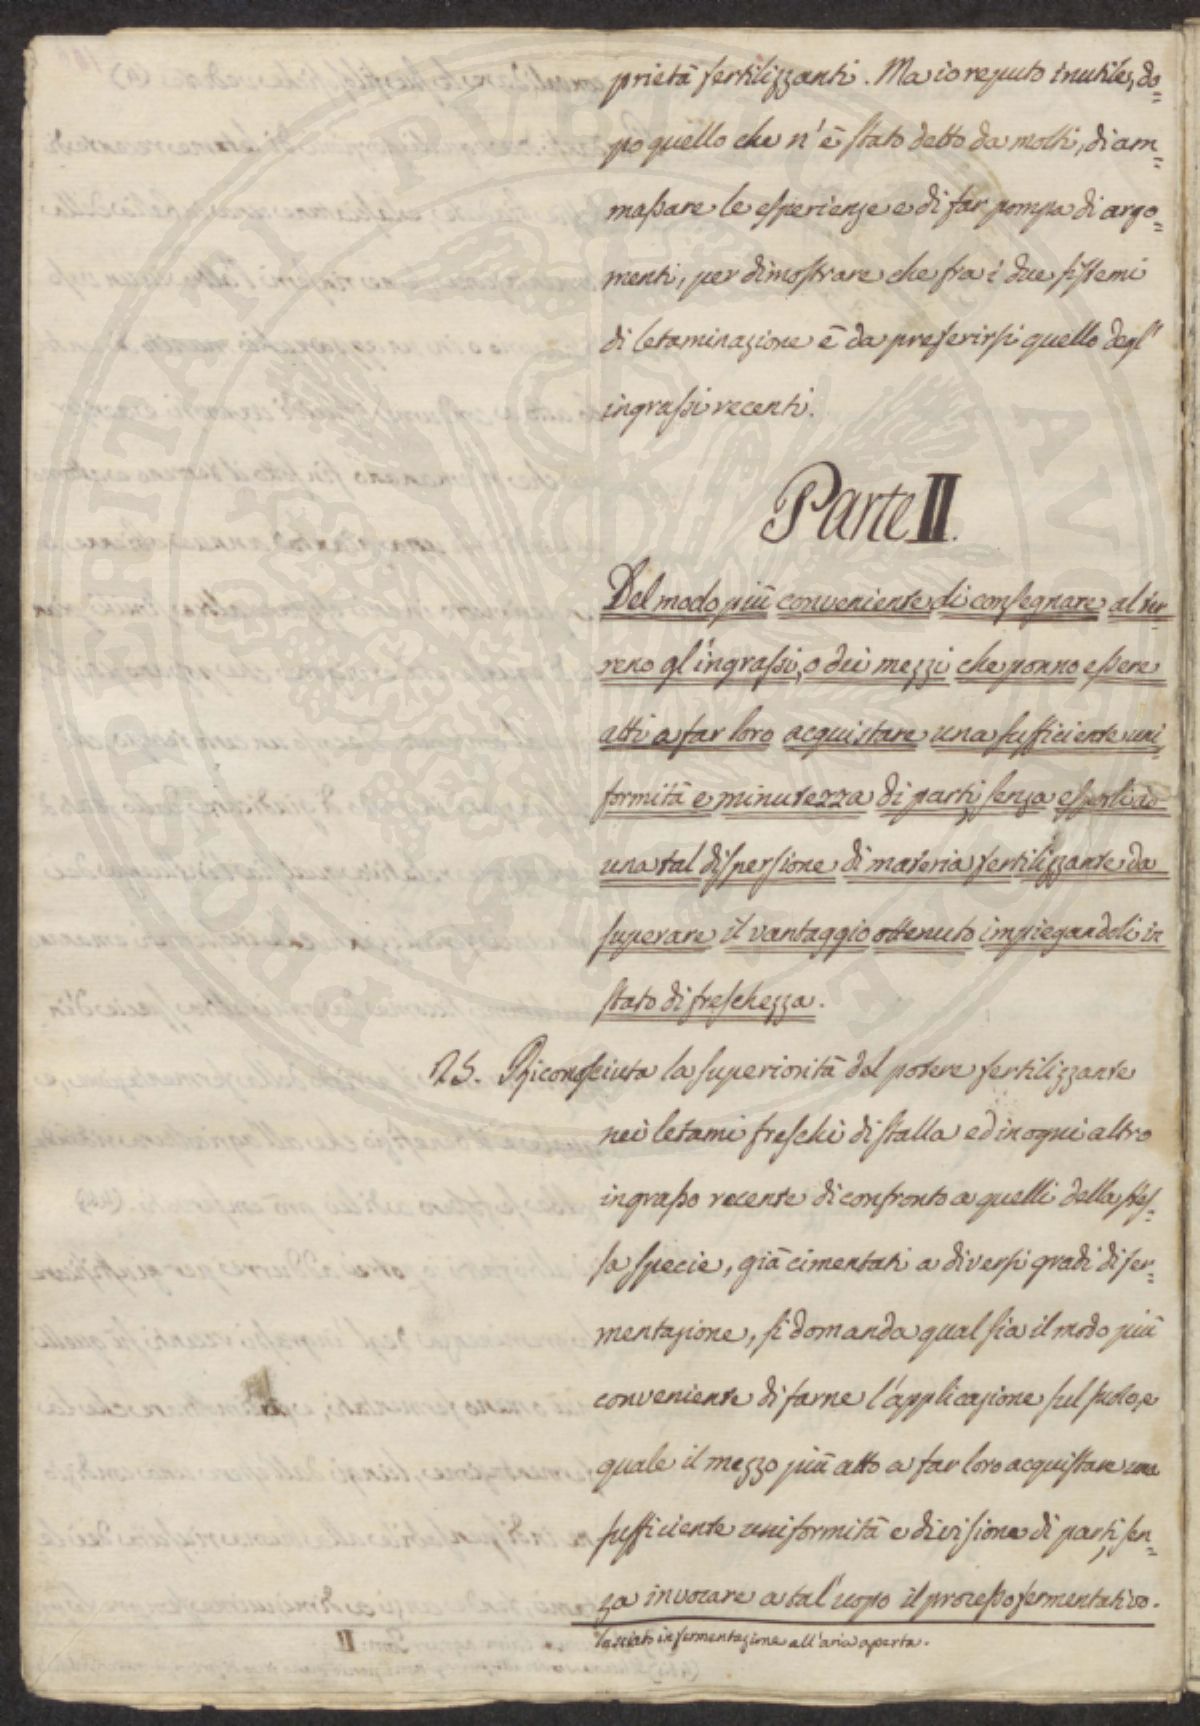 prietà fertilizzanti. Ma io reputo inutile, do=
po quello che n'è stato detto da molti, di am=
massare le esperienze e di far pompa di argo=
menti, per dimostrare che fra i due sistemi
di letaminazione è da preferirsi quello degl'
ingrassi recenti.
Parte II.
Del modo più conveniente di consegnare al ter=
reno gl'ingrassi, o dei mezzi che ponno essere
atti a far loro acquistare una sufficiente uni=
formità e minutezza di parti, senza esporli ad
una tal dispersione di materia fertilizzante da
superare il vantaggio ottenuto impiegandoli in
stato di freschezza.
25. Riconosciuta la superiorità del potere fertilizzante
nei letami freschi di stalla ed in ogni altro
ingrasso recente di confronto a quelli della stes=
sa specie, già cimentati a diversi gradi di fer=
mentazione, si domanda qual sia il modo più
conveniente di farne l'applicazione sul suolo, e
quale il mezzo più atto a far loro acquistare una
sufficiente uniformità e divisione di parti, sen=
za invocare a tal'uopo il processo fermentativo.
lasciato in fermentazione all'aria aperta.